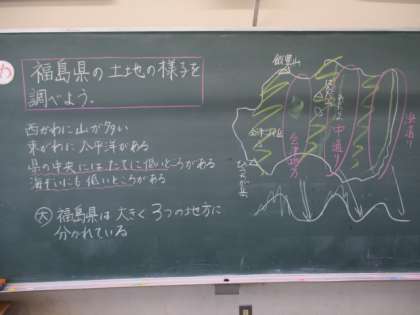 め
福島県の土地の様子を
調べよう.
西がわに山が多い
東がわに太平洋がある
県の中央にはたてに低いところがある
海ぞいにも低いところがある
大 福島県は大きく3つの地方に
分かれている
飯豊山
会津地方
中通り
浜通り